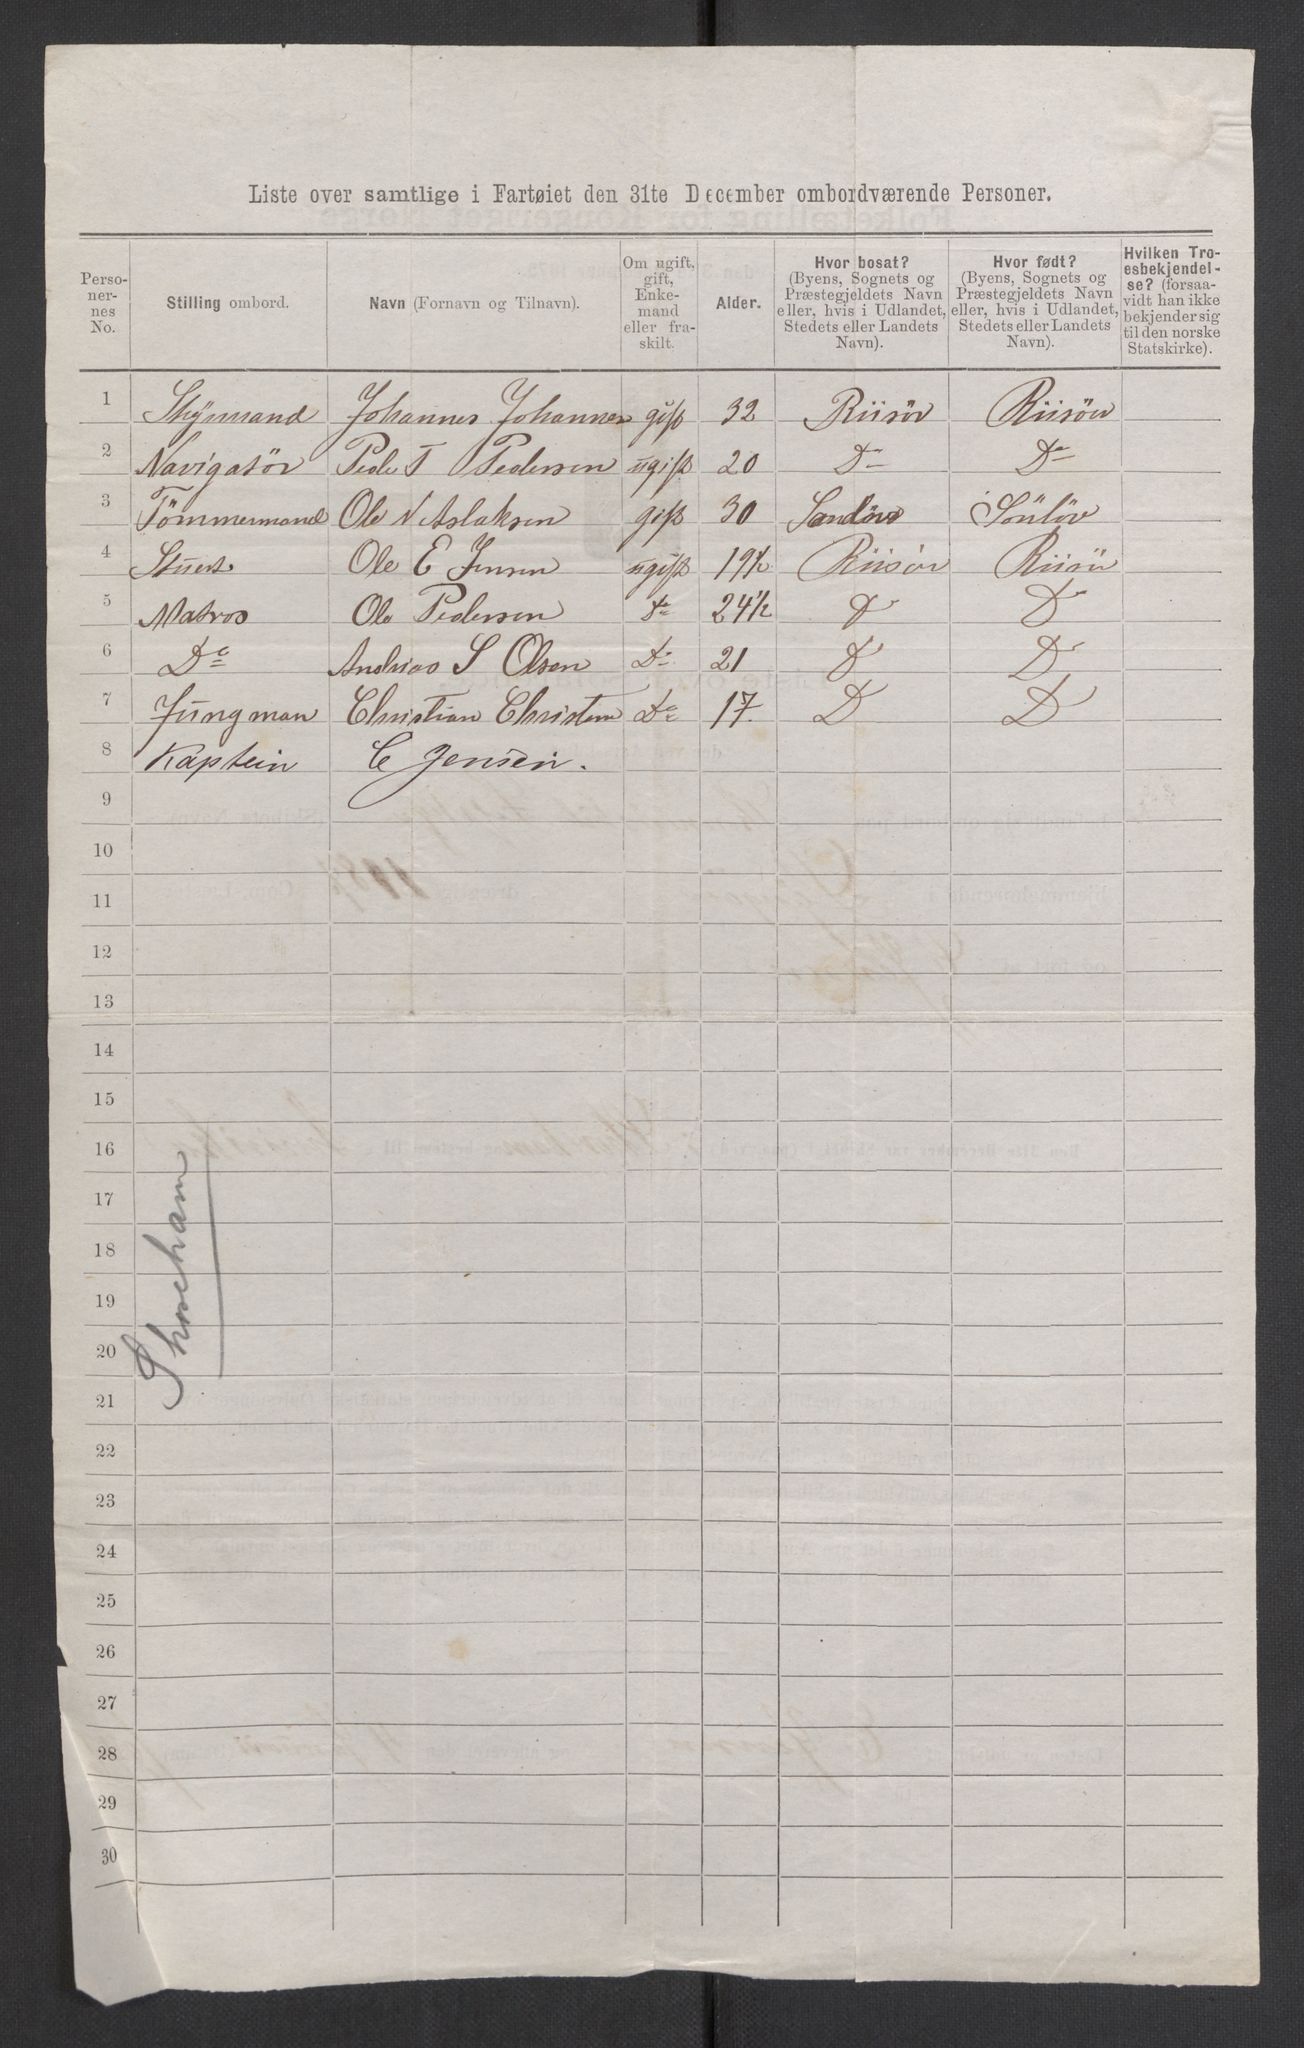 Liste over samtlige i Fartøiet den 31te December ombordværende Personer.
Perso-nernes No. | Stilling ombord. | Navn (Fornavn og Tilnavn). | Om ugift, gift, Enke-mand eller fra-skilt. | Alder. | Hvor bosat? (Byens, Sognets og Præstegjeldets Navn eller, hvis i Udlandet, Stedets eller Landets Navn). | Hvor født? (Byens, Sognets og Præstegjeldets Navn eller, hvis i Udlandet, Stedets eller Landets Navn). | Hvilken Tro-esbekjendel-se? (forsaa-vidt han ikke bekjender sig til den norske Statskirke).
1 Styrmand Johannes Johannes gift 32 Riisör Riisör
2 Navigatör Peder T Pedersen ugift 20 Do Do
3 Tömmermand Ole N Aslaksen gift 30
4 Stuert Ole E Jensen ugift 19½ Riisör Riisör
5 Matros Ole Pedersen Do 24½ D D
6 Do Andreas S Olsen Do 21 D D
7 Jungman Christian Christens Do 17 D D
8 Kaptein C Jensen.
9
10
11
12
13
14
15
16
17
18
19
20
21
22
23
24
25
26
27
28
29
30
Shoreham